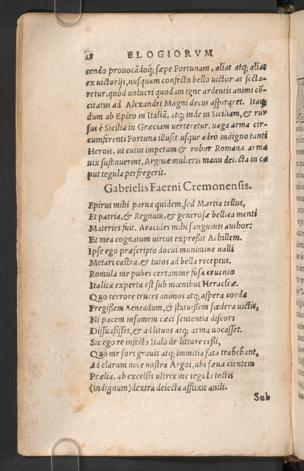 28 ELOGIORVM
cendo prouocādoq; sæpe Fortunam, aliàs atq; aliàs
ex victorijs, nusquam confecto bello victorias secta-
retur, quòd volucri quodam igne ardentis animi cō-
citatus ad Alexandri Magni decus aspiraret. Itaq;
dum ab Epiro in Italiā, atq; inde in Siciliam, & rur
sus è Sicilia in Græciam verteretur, vaga arma cir-
cumferenti Fortuna illusit vsque adeò indigno tanti
Herois, vt cuius impetum & robur Romana arma
vix sustinuerint, Argiuæ mulieris manu deiecta in ca
put tegula perfregerit.
Gabrielis Faerni Cremonensis.
Epirus mihi parua quidem, sed Martia tellus,
Et patria, & Regnum, & generosæ bellica menti
Materies fuit. Aeacides mihi sanguinis author:
Et mea cognatum virtus expressit Achillem.
Ipse ego præscripto docui munimine valli
Metari castra, & tutos ad bella receptus.
Romula me pubes certamine fusa cruento
Italica experta est sub mœnibus Heracleæ.
Quo terrore truces animos atq; aspera corda
Fregissem Aeneadum, & statuissem fœdera victis,
Ni pacem infamem cæci sententia discors
Dissuasisset, & ad lituos atq; arma vocasset.
Sic ego re infecta Italo de littore cessi,
Quò me sors grauis atq; immitia fata trahebant,
Ad clarum nece nostra Argos, vbi sæua cientem
Prælia, ab excelsis vltrix me tegula tectis
(Indignam) dextra deiecta afflixit anili.
Sub